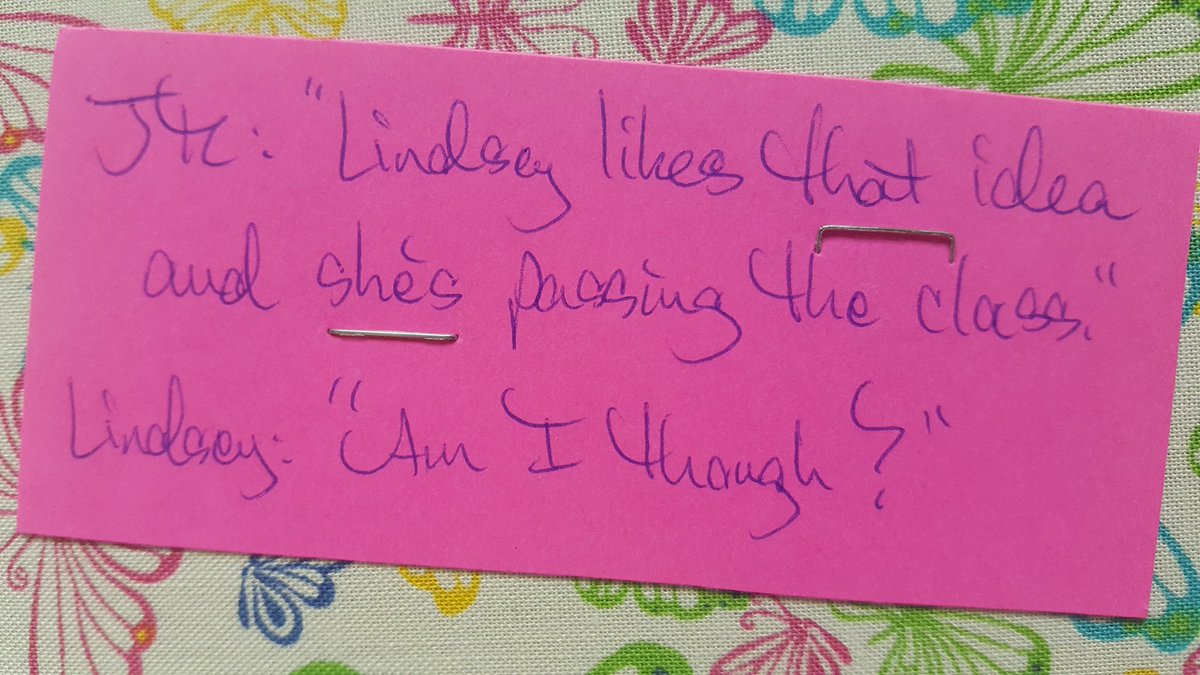 JTK: "Lindsey likes that idea
and she's passing the class."
Lindsey: "Am I though?"